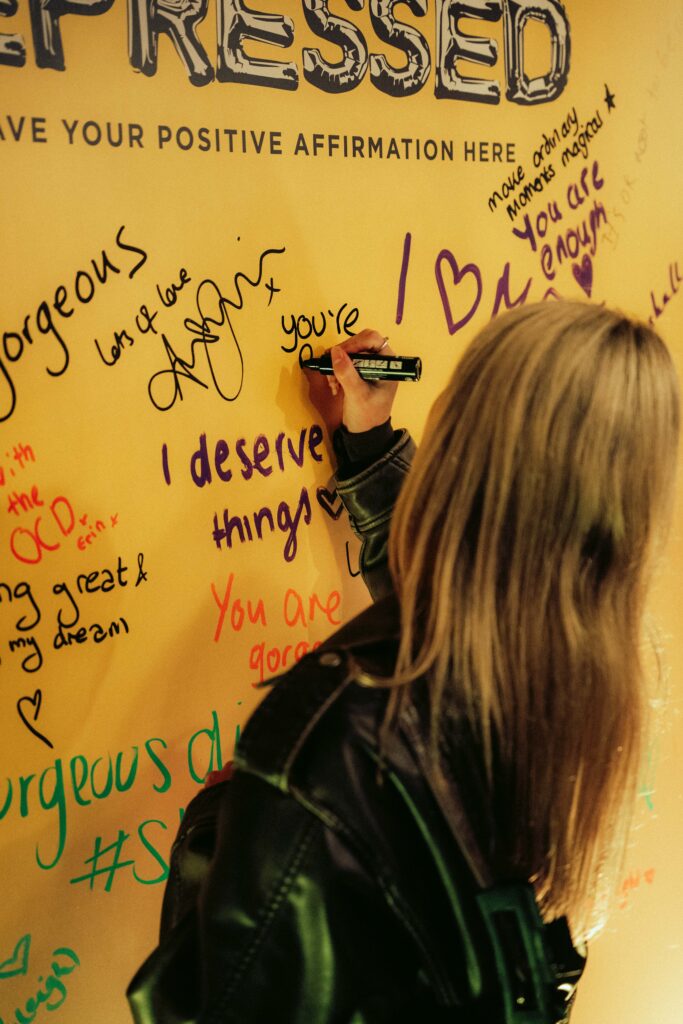 EPRESSED
AVE YOUR POSITIVE AFFIRMATION HERE
make ordinary
moments magical
You are
enough
I
gorgeous
lots of love
you're
I deserve
things
with
the
OCD
Erin x
ng great &
my dream
You are
gorge
orgeous
#S